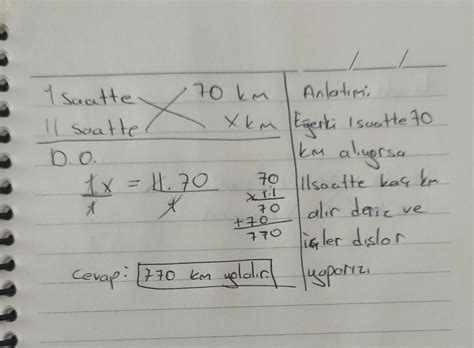 1 saatte 70 km
11 saatte x km
D.O.
1.x = 11.70
1 1
70
x 11
70
+70
770
Cevap: 770 km yoldır
Anlatımı
Eğerki 1 saatte 70
km alıyorsa
11 saatte kaç km
alır deriz ve
içler dışlar
yaparızı